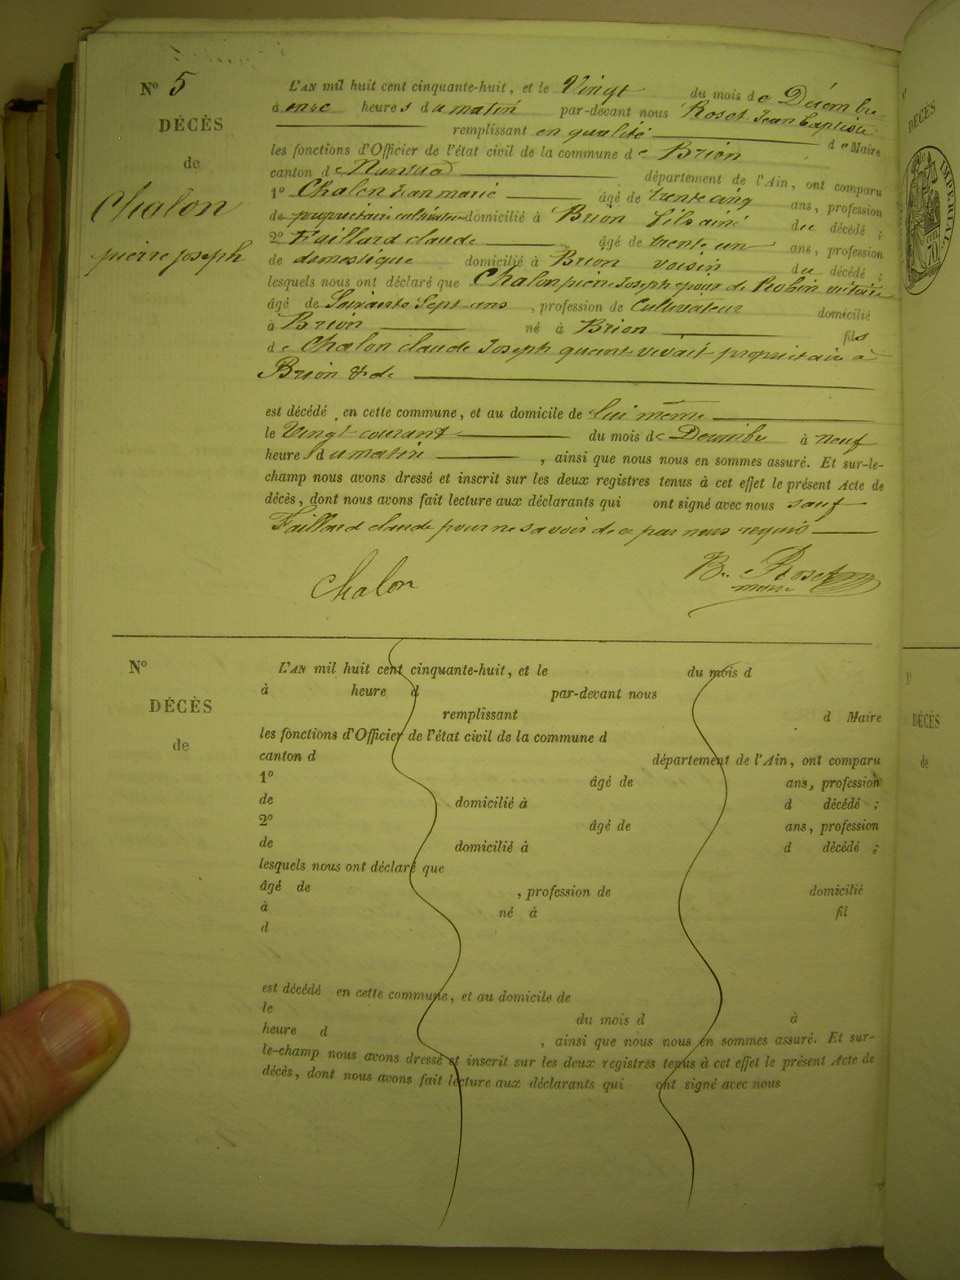 N° 5
DÉCÈS
de
Chalon
pierre joseph
L'AN mil huit cent cinquante-huit, et le Vingt du mois de Décembre
à onze heures du matin par-devant nous Roset Jean Baptiste
remplissant en qualité de Maire
les fonctions d'Officier de l'état civil de la commune de Brion
canton de Nantua département de l'Ain, ont comparu
1° Chalon jean marie âgé de trente cinq ans, profession
de propriétaire cultivateur domicilié à Brion fils ainé du décédé ;
2° Faillard claude âgé de trente un ans, profession
de domestique domicilié à Brion voisin du décédé ;
lesquels nous ont déclaré que Chalon pierre Joseph époux de Robin
âgé de Soixante Sept ans , profession de Cultivateur domicilié
à Brion né à Brion fils
de Chalon claude Joseph quant vivait propriétaire à
Brion & de
est décédé en cette commune, et au domicile de lui même
le Vingt courant du mois de Décembre à neuf
heures du matin , ainsi que nous nous en sommes assuré. Et sur-le-
champ nous avons dressé et inscrit sur les deux registres tenus à cet effet le présent Acte de
décès, dont nous avons fait lecture aux déclarants qui ont signé avec nous sauf
Faillard claude pour ne savoir de ce par nous requis
Chalon
Roset
maire
N°
DÉCÈS
de
L'AN mil huit cent cinquante-huit, et le du mois d
à heure d par-devant nous
remplissant d Maire
les fonctions d'Officier de l'état civil de la commune d
canton d département de l'Ain, ont comparu
1° âgé de ans, profession
de domicilié à d décédé ;
2° âgé de ans, profession
de domicilié à d décédé ;
lesquels nous ont déclaré que
âgé de , profession de domicilié
à né à fil
d
est décédé en cette commune, et au domicile de
le du mois d à
heure d , ainsi que nous nous en sommes assuré. Et sur-
le-champ nous avons dressé et inscrit sur les deux registres tenus à cet effet le présent Acte de
décès, dont nous avons fait lecture aux déclarants qui ont signé avec nous
DÉCÈS
IMPÉRIAL
DÉCÈS
de